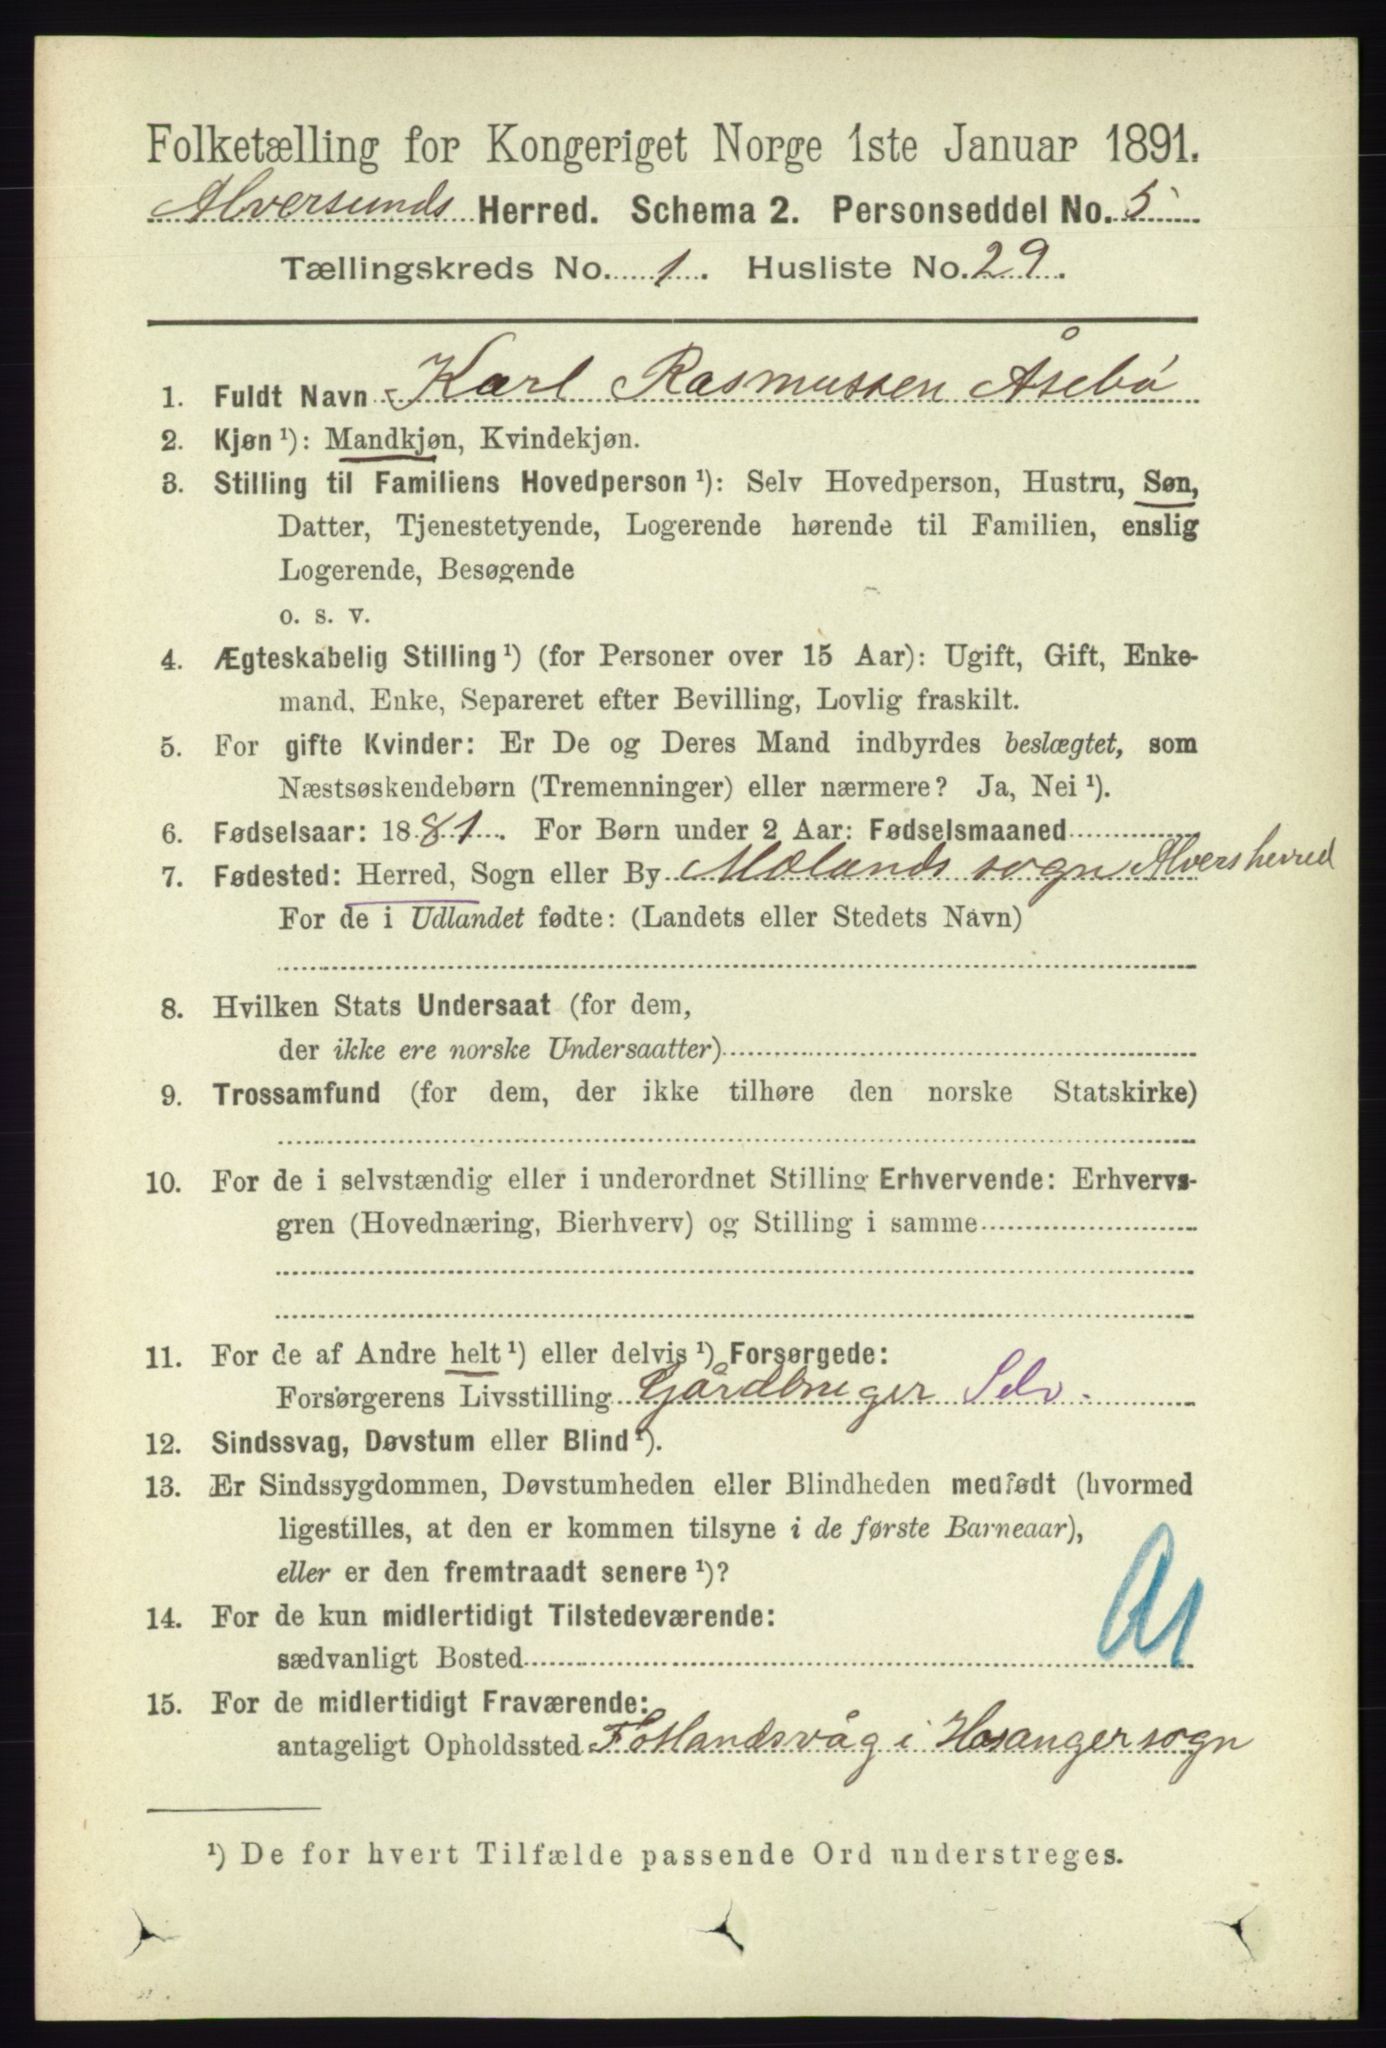 Folketælling for Kongeriget Norge 1ste Januar 1891.
Alversunds Herred. Schema 2. Personseddel No. 5
Tællingskreds No. 1. Husliste No. 29.
1. Fuldt Navn Karl Rasmussen Åsebø
2. Kjøn ¹): Mandkjøn, Kvindekjøn.
3. Stilling til Familiens Hovedperson ¹): Selv Hovedperson, Hustru, Søn,
Datter, Tjenestetyende, Logerende hørende til Familien, enslig
Logerende, Besøgende
o. s. v.
4. Ægteskabelig Stilling ¹) (for Personer over 15 Aar): Ugift, Gift, Enke-
mand, Enke, Separeret efter Bevilling, Lovlig fraskilt.
5. For gifte Kvinder: Er De og Deres Mand indbyrdes beslægtet, som
Næstsøskendebørn (Tremenninger) eller nærmere? Ja, Nei ¹).
6. Fødselsaar: 1881. For Børn under 2 Aar: Fødselsmaaned
7. Fødested: Herred, Sogn eller By Mælands sogn Alversherred
For de i Udlandet fødte: (Landets eller Stedets Navn)
8. Hvilken Stats Undersaat (for dem,
der ikke ere norske Undersaatter)
9. Trossamfund (for dem, der ikke tilhøre den norske Statskirke)
10. For de i selvstændig eller i underordnet Stilling Erhvervende: Erhvervs-
gren (Hovednæring, Bierhverv) og Stilling i samme
11. For de af Andre helt ¹) eller delvis ¹) Forsørgede:
Forsørgerens Livsstilling Gårdbruger Selv.
12. Sindssvag, Døvstum eller Blind ¹).
13. Er Sindssygdommen, Døvstumheden eller Blindheden medfødt (hvormed
ligestilles, at den er kommen tilsyne i de første Barneaar),
eller er den fremtraadt senere ¹)?
14. For de kun midlertidigt Tilstedeværende:
sædvanligt Bosted
15. For de midlertidigt Fraværende:
antageligt Opholdssted Fotlandsvåg i Hosanger sogn
¹) De for hvert Tilfælde passende Ord understreges.